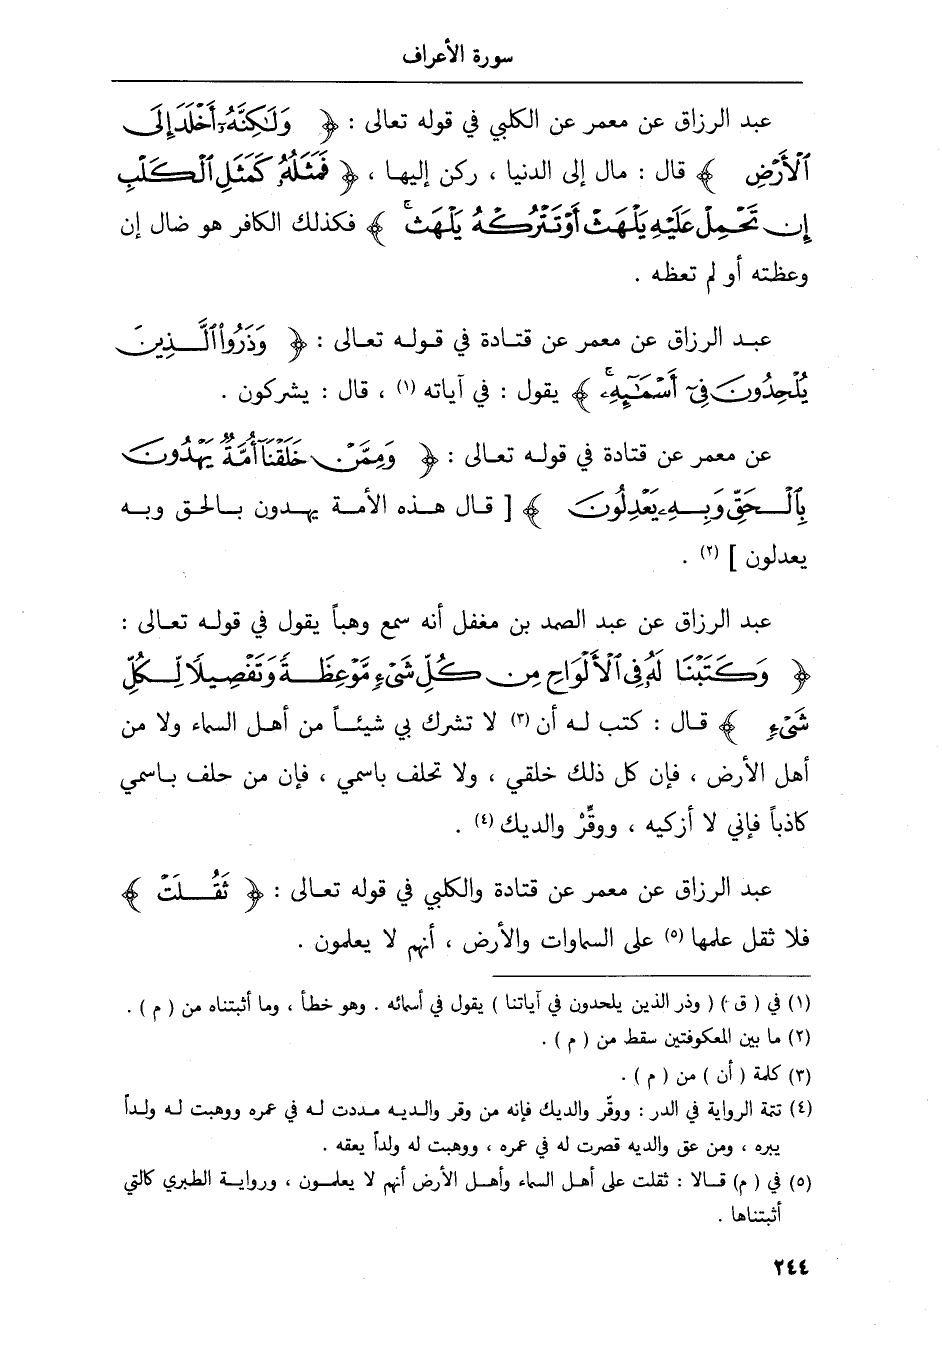 سورة الأعراف
عبد الرزاق عن معمر عن الكلبي في قوله تعالى : ﴿ وَلَٰكِنَّهُۥٓ أَخْلَدَ إِلَى
ٱلْأَرْضِ ﴾ قال : مال إلى الدنيا ، ركن إليها ، ﴿ فَمَثَلُهُۥ كَمَثَلِ ٱلْكَلْبِ
إِن تَحْمِلْ عَلَيْهِ يَلْهَثْ أَوْ تَتْرُكْهُ يَلْهَث ۚ ﴾ فكذلك الكافر هو ضال إن
وعظته أو لم تعظه .
عبد الرزاق عن معمر عن قتادة في قوله تعالى : ﴿ وَذَرُوا۟ ٱلَّذِينَ
يُلْحِدُونَ فِىٓ أَسْمَٰٓئِهِۦ ۚ ﴾ يقول : في آياته (١) ، قال : يشركون .
عن معمر عن قتادة في قوله تعالى : ﴿ وَمِمَّنْ خَلَقْنَآ أُمَّةٌ يَهْدُونَ
بِٱلْحَقِّ وَبِهِۦ يَعْدِلُونَ ﴾ [ قال هذه الأمة يهدون بالحق وبه
يعدلون ] (٢) .
عبد الرزاق عن عبد الصمد بن مغفل أنه سمع وهباً يقول في قوله تعالى :
﴿ وَكَتَبْنَا لَهُۥ فِى ٱلْأَلْوَاحِ مِن كُلِّ شَىْءٍ مَّوْعِظَةً وَتَفْصِيلًا لِّكُلِّ
شَىْءٍ ﴾ قال : كتب له أن (٣) لا تشرك بي شيئاً من أهل السماء ولا من
أهل الأرض ، فإن كل ذلك خلقي ، ولا تحلف باسمي ، فإن من حلف باسمي
كاذباً فإني لا أزكيه ، ووقِّرْ والديك (٤) .
عبد الرزاق عن معمر عن قتادة والكلبي في قوله تعالى : ﴿ ثَقُلَتْ ﴾
فلا ثقل علمها (٥) على السماوات والأرض ، أنهم لا يعلمون .
(١) في ( ق ) ( وذر الذين يلحدون في آياتنا ) يقول في أسمائه . وهو خطأ ، وما أثبتناه من ( م ) .
(٢) ما بين المعكوفتين سقط من ( م ) .
(٣) كلمة ( أن ) من ( م ) .
(٤) تتمة الرواية في الدر : ووقّر والديك فإنه من وقر والديه مددت له في عمره ووهبت له ولداً
يبره ، ومن عق والديه قصرت له في عمره ، ووهبت له ولداً يعقه .
(٥) في ( م ) قالا : ثقلت على أهل السماء وأهل الأرض أنهم لا يعلمون ، ورواية الطبري كالتي
أثبتناها .
٢٤٤